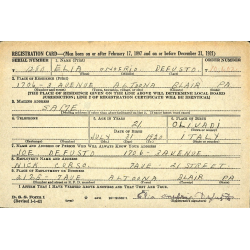 REGISTRATION CARD—(Men born on or after February 17, 1897 and on or before December 31, 1921)
SERIAL NUMBER 1. NAME (Print) ORDER NUMBER
ELIA ONOFRIO DEFUSTO
(First) (Middle) (Last)
2. PLACE OF RESIDENCE (Print)
1706-3 AVENUE ALTOONA BLAIR PA
(Number and street) (Town, township, village, or city) (County) (State)
[THE PLACE OF RESIDENCE GIVEN ON THE LINE ABOVE WILL DETERMINE LOCAL BOARD
JURISDICTION; LINE 2 OF REGISTRATION CERTIFICATE WILL BE IDENTICAL]
3. MAILING ADDRESS
SAME
4. TELEPHONE 5. AGE IN YEARS 6. PLACE OF BIRTH
21 OLIVADI
DATE OF BIRTH
JULY 31 1920 ITALY
7. NAME AND ADDRESS OF PERSON WHO WILL ALWAYS KNOW YOUR ADDRESS
JOE DEFUSTO 1706-3AVENUE
8. EMPLOYER'S NAME AND ADDRESS
NICK CORSO 7AVE 21 STREET
9. PLACE OF EMPLOYMENT OR BUSINESS
2125-7AVE ALTOONA BLAIR PA
I AFFIRM THAT I HAVE VERIFIED ABOVE ANSWERS AND THAT THEY ARE TRUE.
D. S. S. Form 1